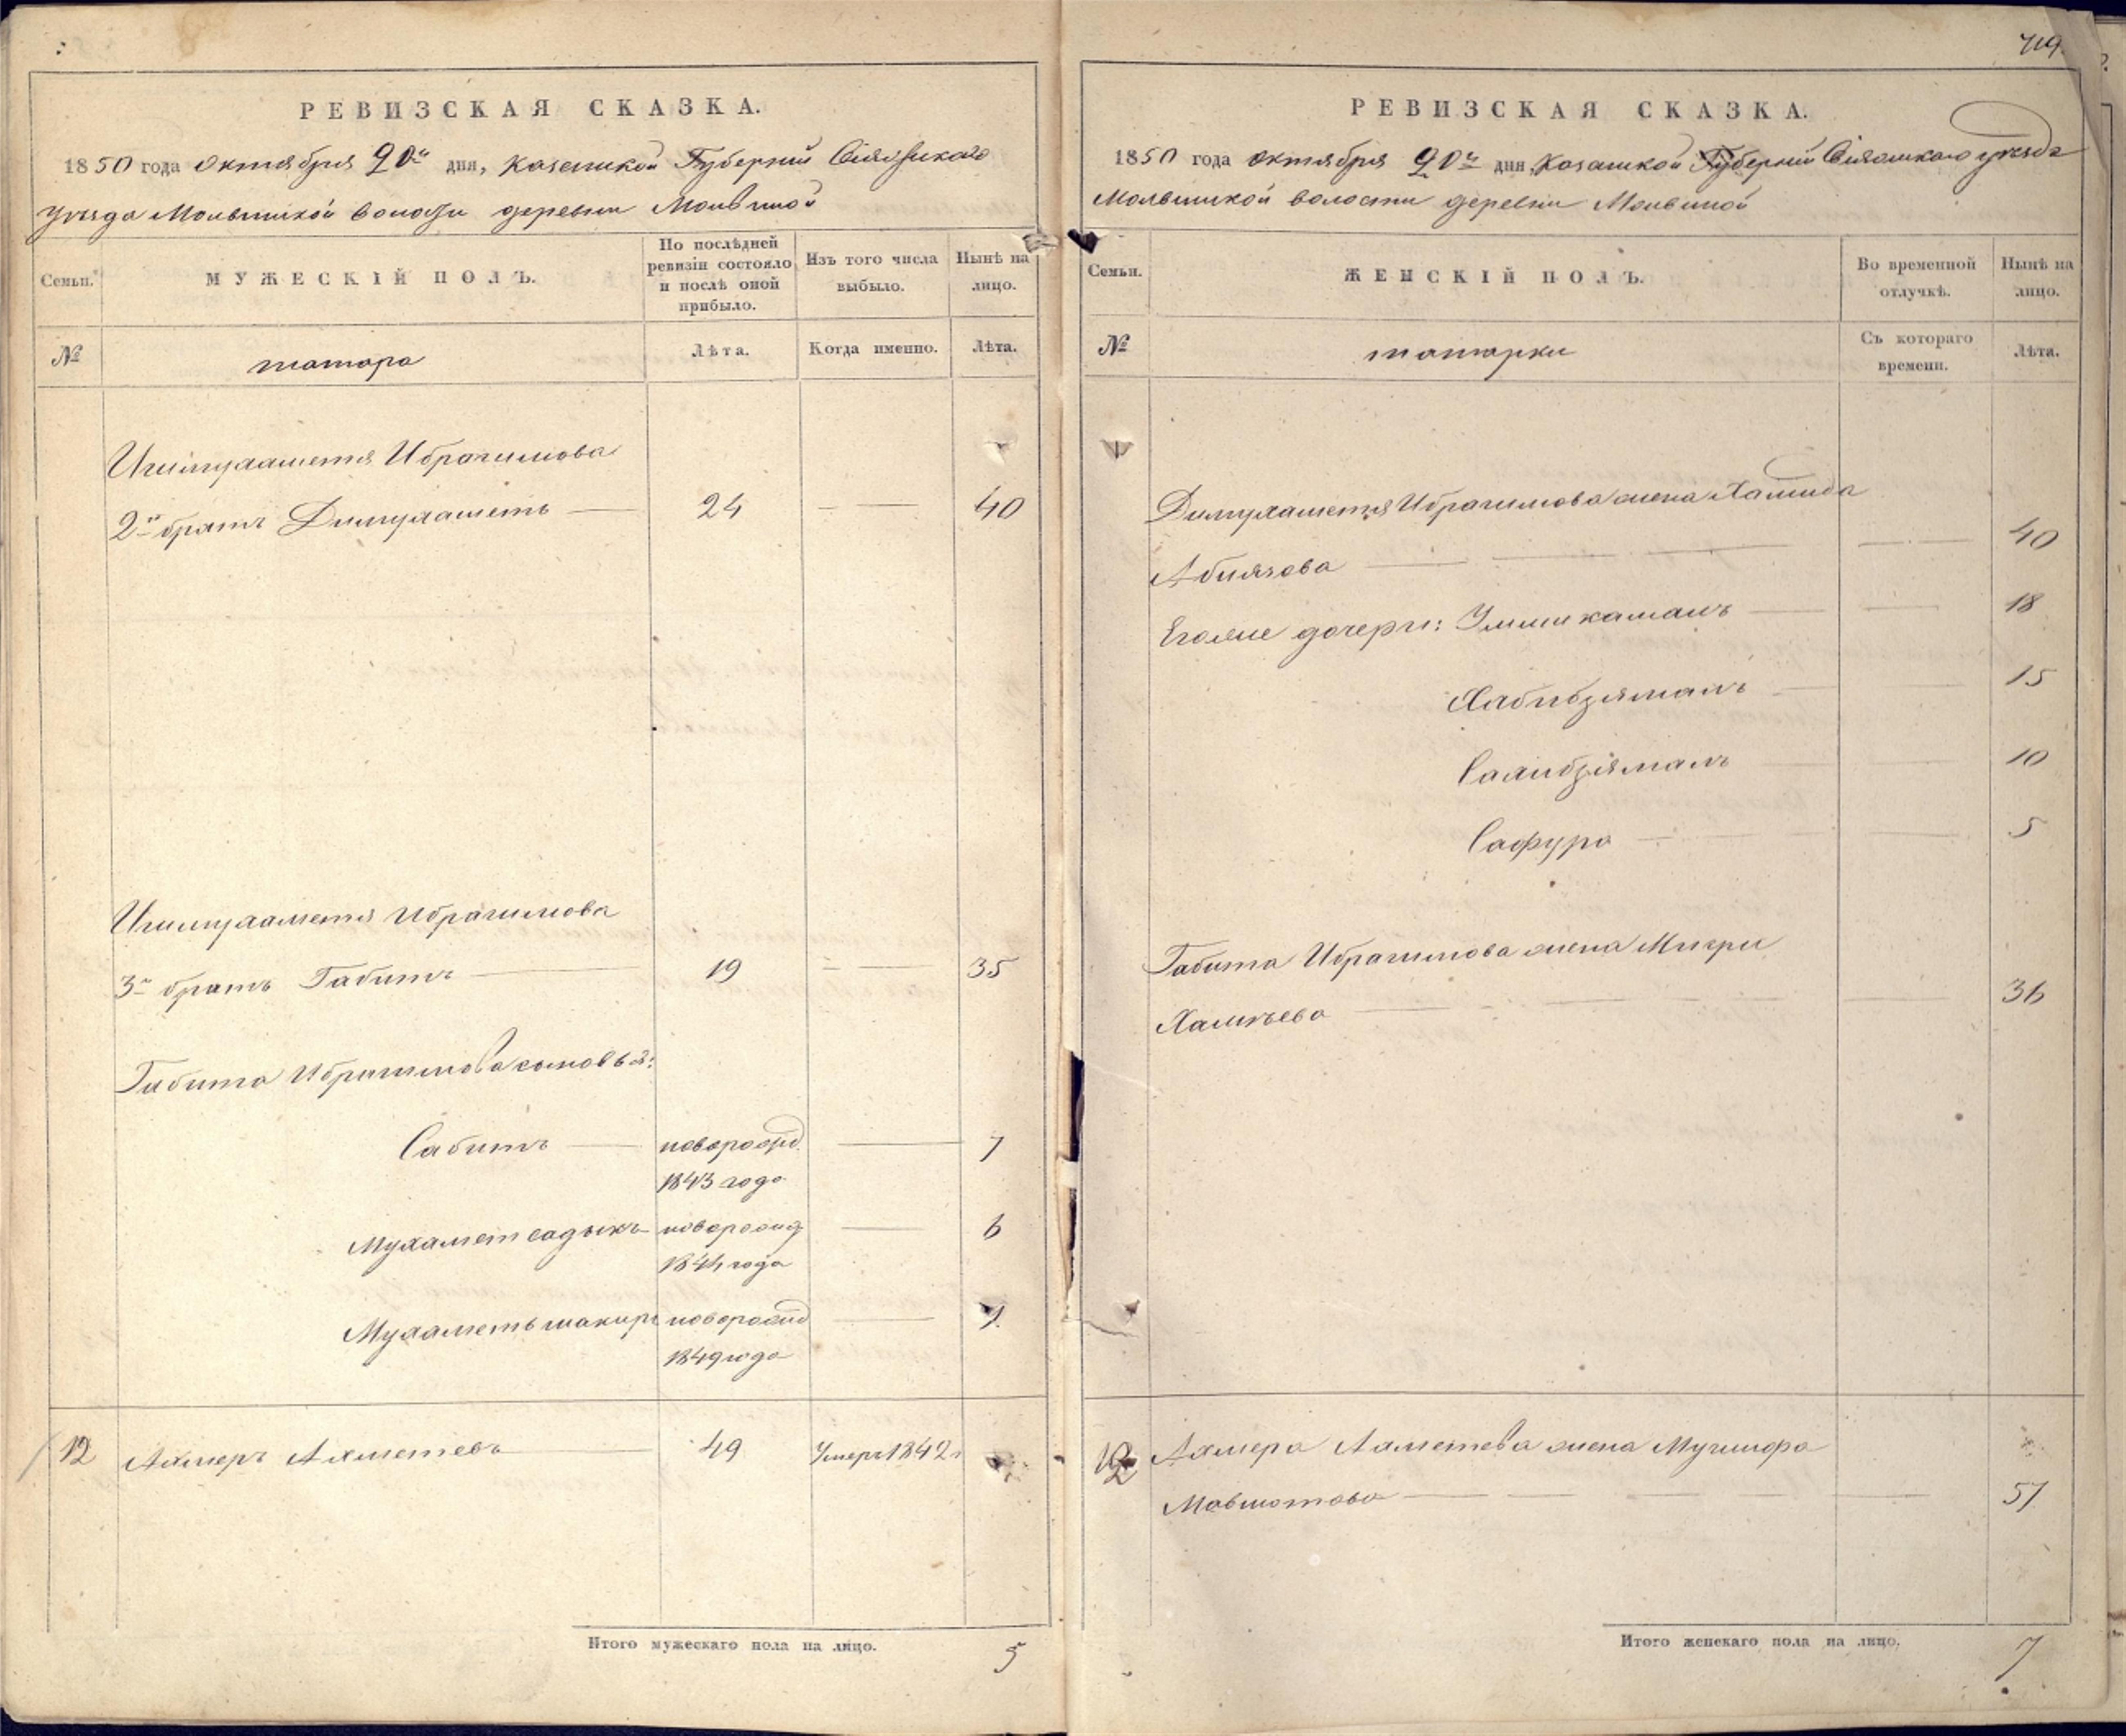 719
РЕВИЗСКАЯ СКАЗКА.
1850 года октября 20го дня, Казанской Губернии Свіяжскаго
уѣзда Мольвинской волости деревни Мольвиной
Семьи.
МУЖЕСКІЙ ПОЛЪ.
По послѣдней ревизіи состояло и послѣ оной прибыло.
Изъ того числа выбыло.
Нынѣ на лицо.
№
татара
Лѣта.
Когда именно.
Лѣта.
Ибрагимова
2й братъ Димухаметь — 24 — 40
Ибрагимова
3й братъ Габитъ — 19 — 35
Габита Ибрагимова сыновья:
Сабитъ — новорожд. — 7
1843 года
Мухаметсадыкъ новорожд — 6
1844 года
Мухаметьшакиръ новорожд — 1.
1849 года
12 Ахмеръ Ахметевъ — 49 Умеръ 1842 г
Итого мужескаго пола на лицо. 5
РЕВИЗСКАЯ СКАЗКА.
1850 года октября 20го дня, Казанской Губерніи Свіяжскаго уѣзда
Мольвинской волости деревни Мольвиной
Семьи.
ЖЕНСКІЙ ПОЛЪ.
Во временной отлучкѣ.
Нынѣ на лицо.
№
татарки
Съ котораго времени.
Лѣта.
Димухаметя Ибрагимова жена Хамида
Абиязова — — 40
Егожые дочери: Уммикамалъ — — 18
Хабибзямалъ — — 15
Салибзямалъ — — 10
Сафура — — 5
Габита Ибрагимова жена Мигри
Халитьева — — 36
12 Ахмера Ахметева жена
— — 57
Итого женскаго пола на лицо. 7